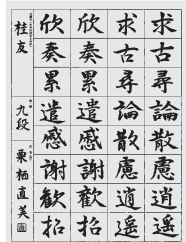 求古尋論散慮逍遥
求古尋論散慮逍遥
欣奏累遣慼謝歡招
欣奏累遣慼謝歓招
桂友
九段
栗栖直美